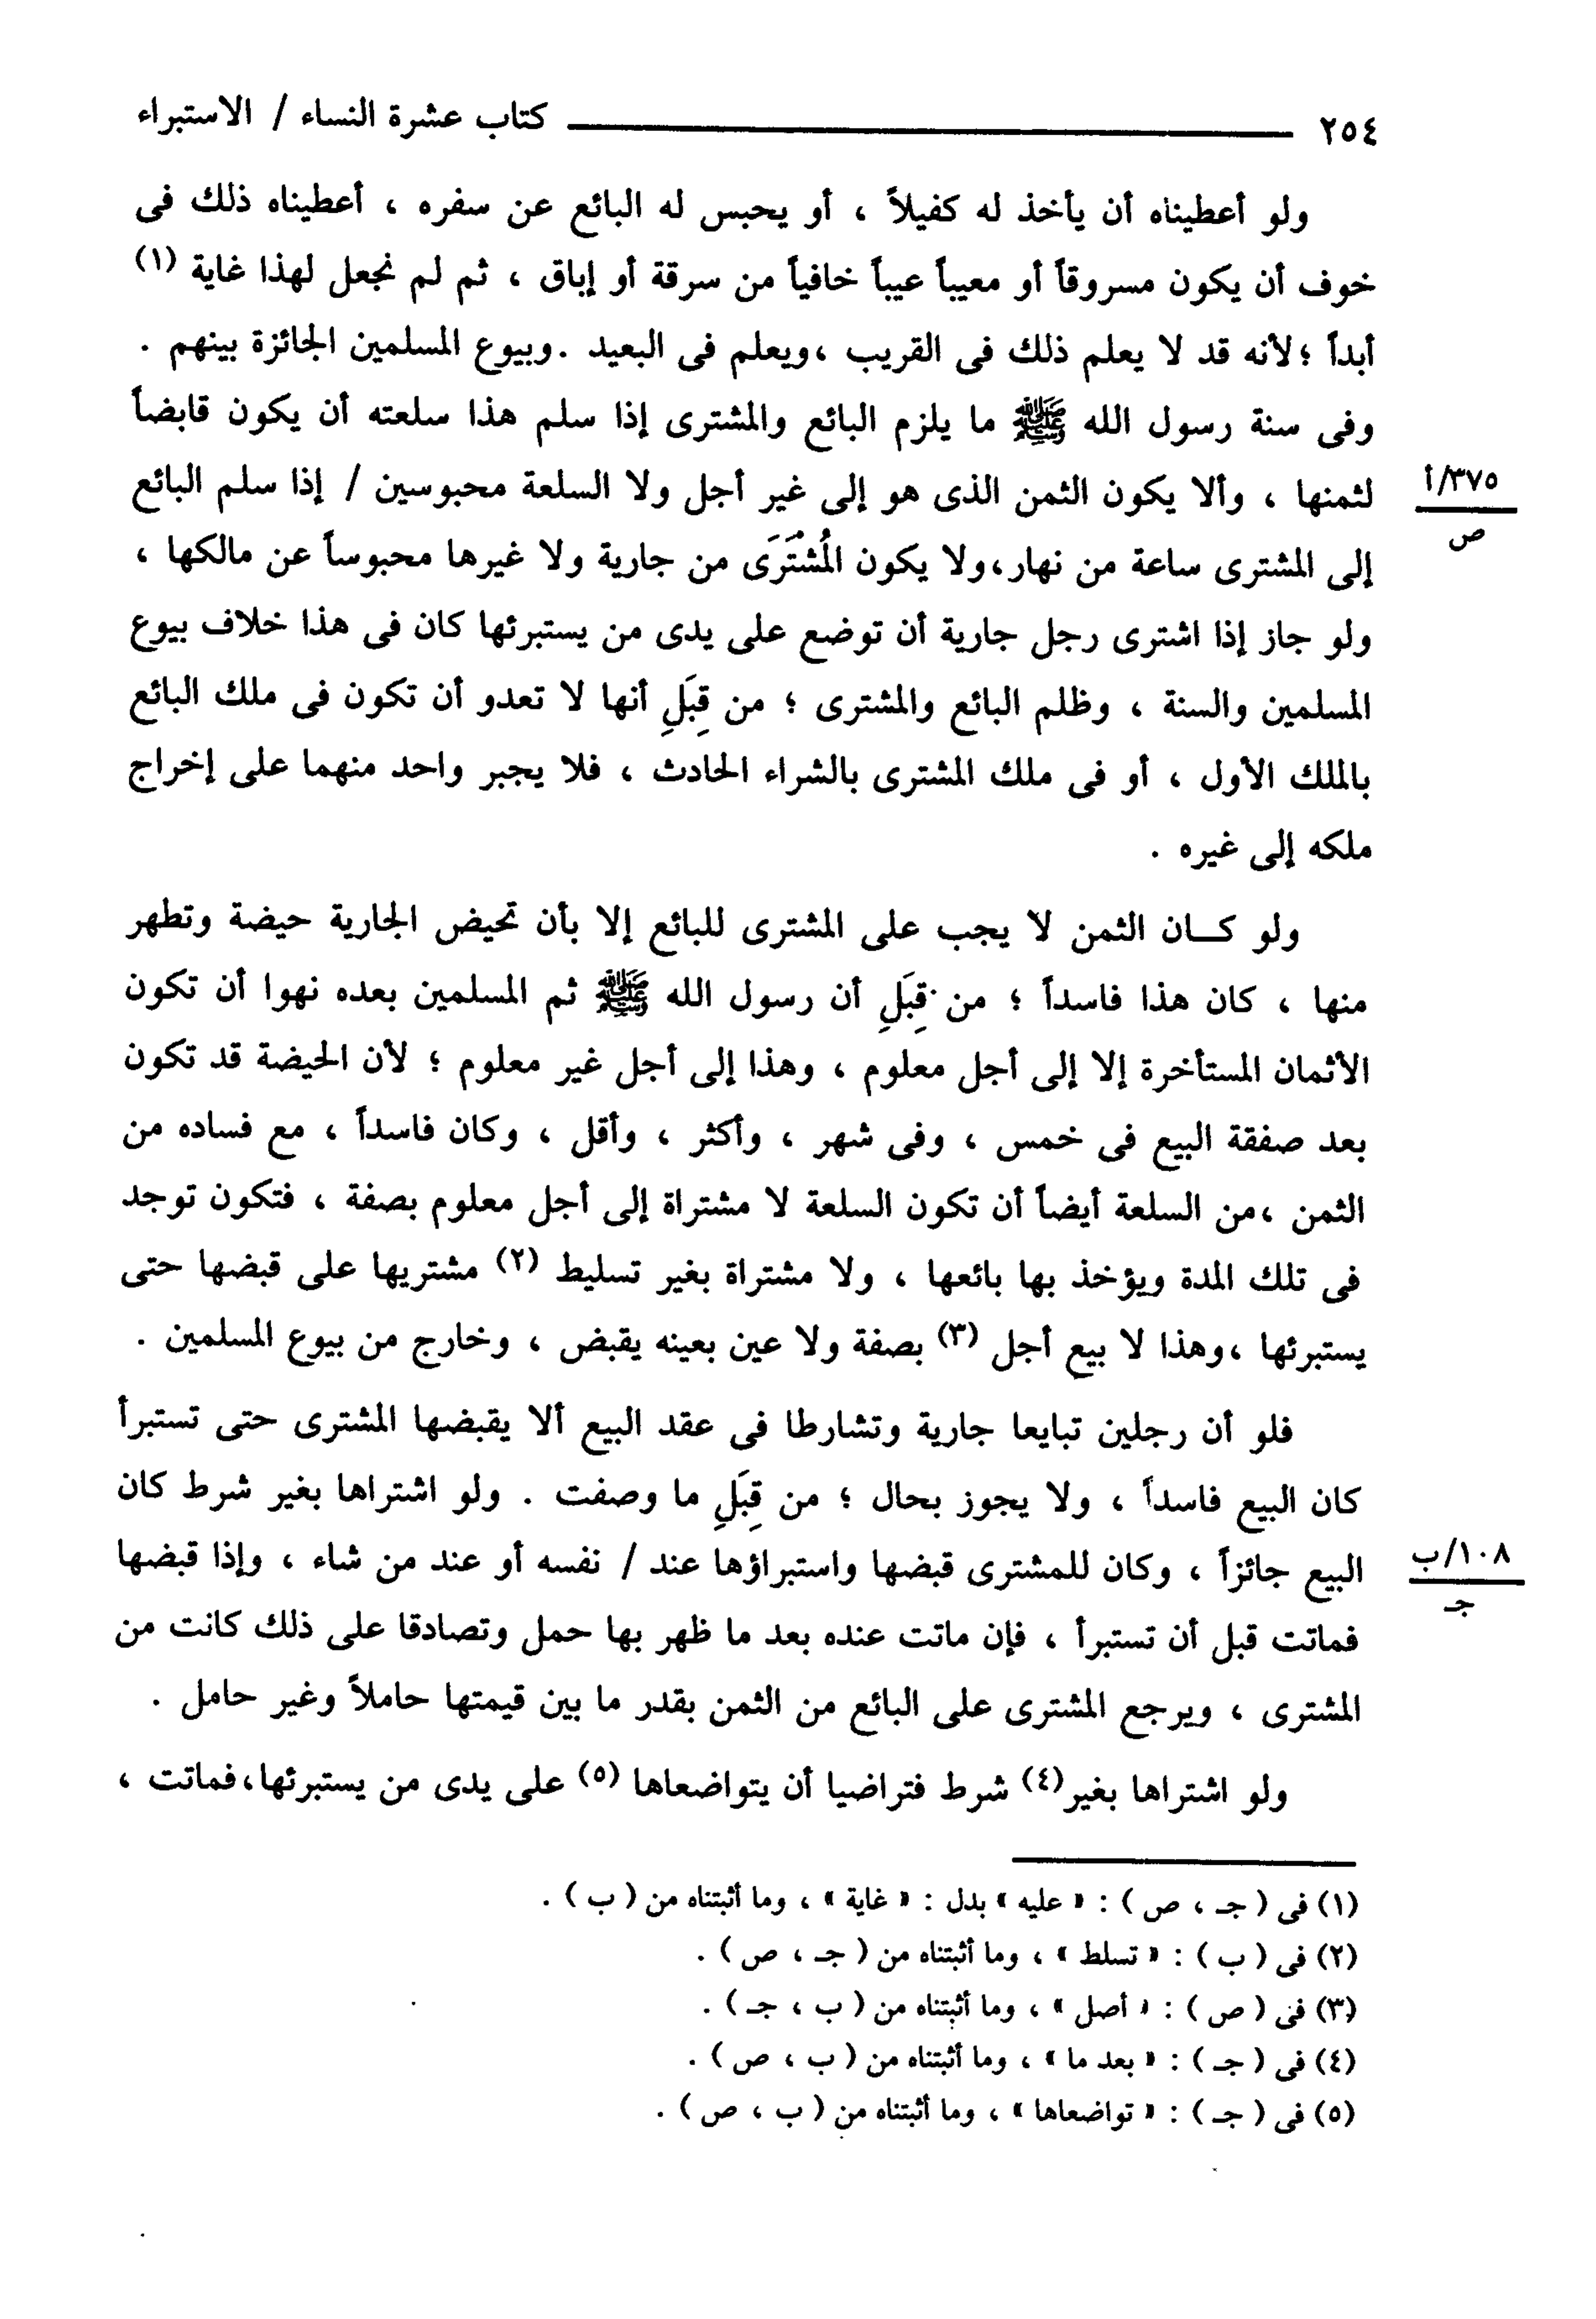 ٢٥٤ كتاب عشرة النساء / الاستبراء
ولو أعطيناه أن يأخذ له كفيلاً ، أو يحبس له البائع عن سفره ، أعطيناه ذلك فى
خوف أن يكون مسروقاً أو معيباً عيباً خافياً من سرقة أو إباق ، ثم لم نجعل لهذا غاية (١)
أبداً ؛ لأنه قد لا يعلم ذلك فى القريب ، ويعلم فى البعيد . وبيوع المسلمين الجائزة بينهم .
وفى سنة رسول الله ﷺ ما يلزم البائع والمشترى إذا سلم هذا سلعته أن يكون قابضاً
لثمنها ، وألا يكون الثمن الذى هو إلى غير أجل ولا السلعة محبوسين / إذا سلم البائع
٣٧٥/أ
ص
إلى المشترى ساعة من نهار ، ولا يكون المُشْتَرَى من جارية ولا غيرها محبوساً عن مالكها ،
ولو جاز إذا اشترى رجل جارية أن توضع على يدى من يستبرئها كان فى هذا خلاف بيوع
المسلمين والسنة ، وظلم البائع والمشترى ؛ من قِبَلِ أنها لا تعدو أن تكون فى ملك البائع
بالملك الأول ، أو فى ملك المشترى بالشراء الحادث ، فلا يجبر واحد منهما على إخراج
ملكه إلى غيره .
ولو كــان الثمن لا يجب على المشترى للبائع إلا بأن تحيض الجارية حيضة وتطهر
منها ، كان هذا فاسداً ؛ من قِبَلِ أن رسول الله ﷺ ثم المسلمين بعده نهوا أن تكون
الأثمان المستأخرة إلا إلى أجل معلوم ، وهذا إلى أجل غير معلوم ؛ لأن الحيضة قد تكون
بعد صفقة البيع فى خمس ، وفى شهر ، وأكثر ، وأقل ، وكان فاسداً ، مع فساده من
الثمن ، من السلعة أيضاً أن تكون السلعة لا مشتراة إلى أجل معلوم بصفة ، فتكون توجد
فى تلك المدة ويؤخذ بها بائعها ، ولا مشتراة بغير تسليط (٢) مشتريها على قبضها حتى
يستبرئها ، وهذا لا بيع أجل (٣) بصفة ولا عين بعينه يقبض ، وخارج من بيوع المسلمين .
فلو أن رجلين تبايعا جارية وتشارطا فى عقد البيع ألا يقبضها المشترى حتى تستبرأ
كان البيع فاسداً ، ولا يجوز بحال ؛ من قِبَلِ ما وصفت . ولو اشتراها بغير شرط كان
البيع جائزاً ، وكان للمشترى قبضها واستبراؤها عند / نفسه أو عند من شاء ، وإذا قبضها
١٠٨/ب
جـ
فماتت قبل أن تستبرأ ، فإن ماتت عنده بعد ما ظهر بها حمل وتصادقا على ذلك كانت من
المشترى ، ويرجع المشترى على البائع من الثمن بقدر ما بين قيمتها حاملاً وغير حامل .
ولو اشتراها بغير (٤) شرط فتراضيا أن يتواضعاها (٥) على يدى من يستبرئها ، فماتت ،
(١) فى ( جـ ، ص ) : « عليه » بدل : « غاية » ، وما أثبتناه من ( ب ) .
(٢) فى ( ب ) : « تسلط » ، وما أثبتناه من ( جـ ، ص ) .
(٣) فى ( ص ) : « أصل » ، وما أثبتناه من ( ب ، جـ ) .
(٤) فى ( جـ ) : « بعد ما » ، وما أثبتناه من ( ب ، ص ) .
(٥) فى ( جـ ) : « تواضعاها » ، وما أثبتناه من ( ب ، ص ) .